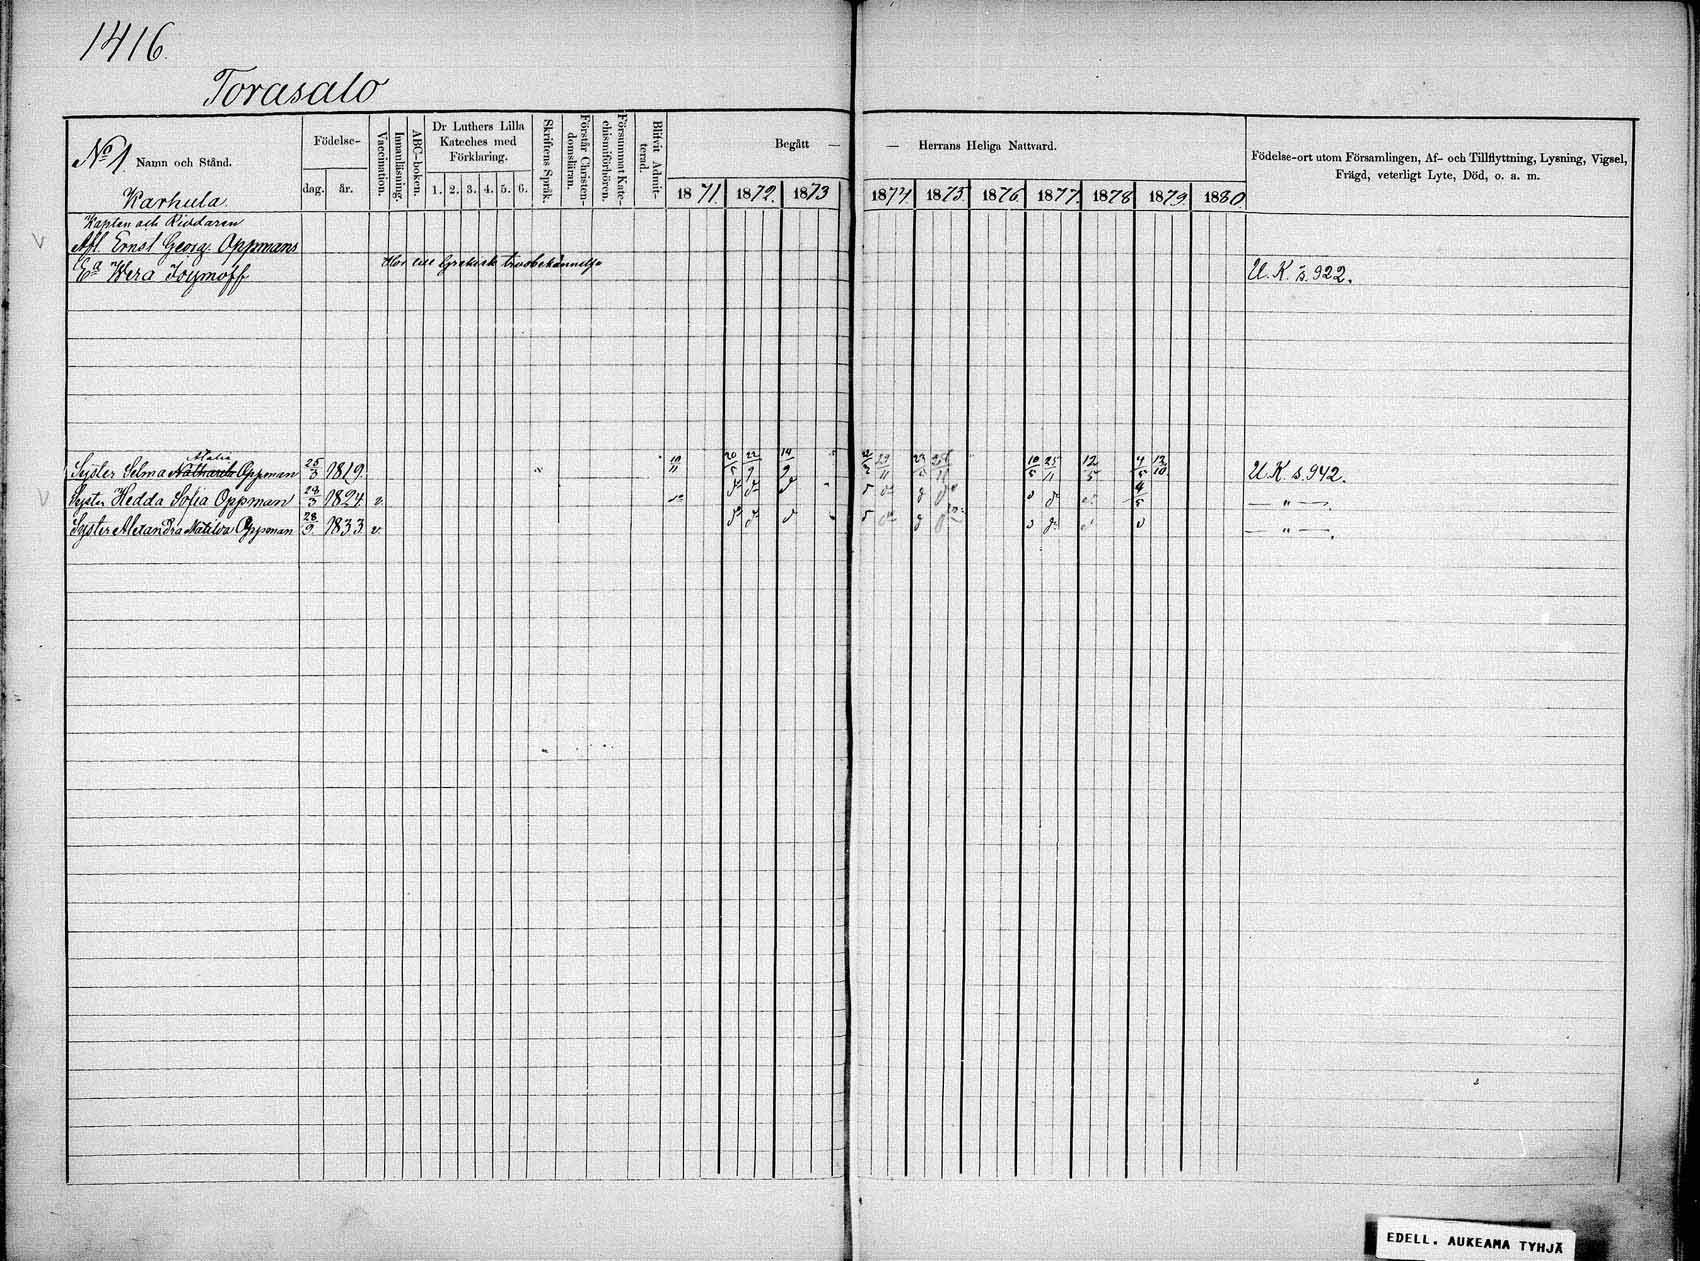 1416.
Torasalo
No 1
Namn och Stånd.
Karhula.
Födelse-
dag.
år.
Vaccination.
Innanläsning.
ABC-boken.
Dr Luthers Lilla
Kateches med
Förklaring.
1. 2. 3. 4. 5. 6.
Skriftens Språk.
Förstår Christen-
domsläran.
Försummat Kate-
chismiförhören.
Blifvit Admit-
terad.
Begått —
— Herrans Heliga Nattvard.
1871. 1872. 1873 1874 1875. 1876. 1877. 1878 1879. 1880
Födelse-ort utom Församlingen, Af- och Tillflyttning, Lysning, Vigsel,
Frägd, veterligt Lyte, Död, o. a. m.
Kapten och Riddaren
Afl. Ernst Georg Oppmans
Ea Wera
Hör till Grekisk trosbekännelse
U. K. s. 922.
Syster Selma Oppman 25/3 1819. 10/11 20/5 22/9 14/9 10/5 25/11 12/5 4/5 12/10 U. K. s. 942.
Syster Hedda Sofia Oppman 3 1824. v. 4/5 — " —.
Syster Alexandra Matilda Oppman 28/9. 1833 v. — " —.
EDELL. AUKEAMA TYHJÄ